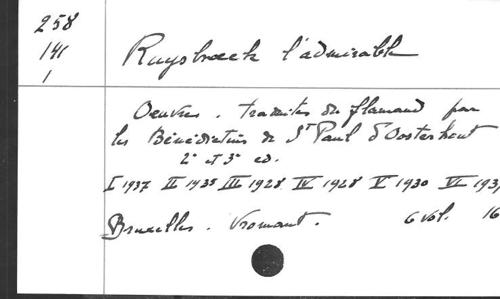 258
141
1
Ruysbroeck l'admirable
Oeuvres. traduites du flamand par
les Bénédictins de St Paul d'Oosterhout
2e et 3e ed.
I 1937 II 1935 III 1928 IV 1928 V 1930 VI 193
Bruxelles. Vromant. 6 vol. 16